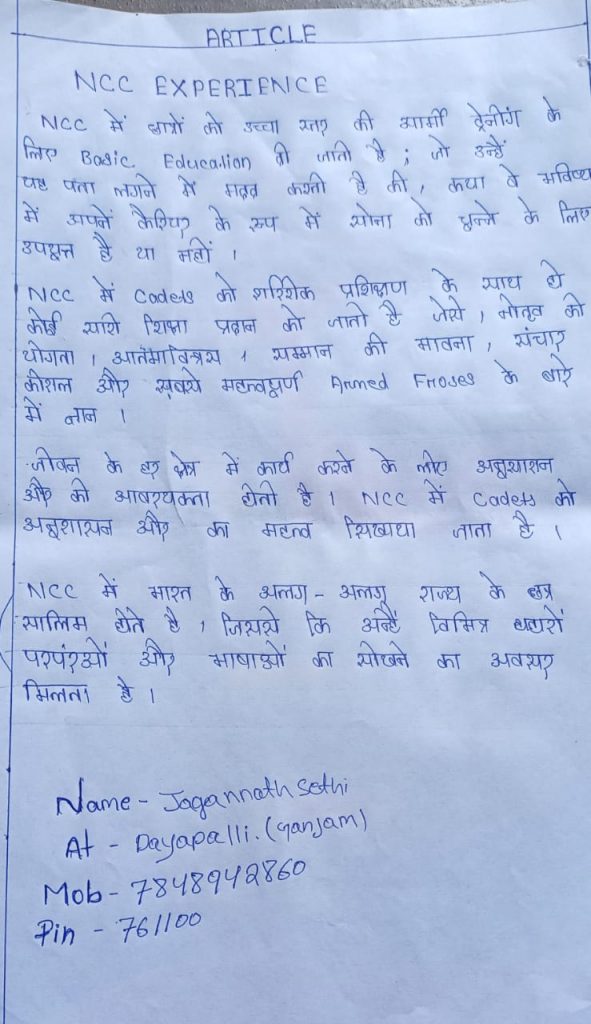 ARTICLE
NCC EXPERIENCE
NCC में छात्रों को उच्चा स्तर की आर्मी ट्रेनींग के
लिए Basic Education दी जाती है ; जो उन्हें
यह पता लगने में मदद करती है की , कया वे भविष्य
में अपनें कैरियर के रूप में सेना को चुन्ने के लिए
उपयुक्त है या नहीं ।
NCC में Cadets को शारिरीक प्रशिक्षण के साथ हि
कोई सारी शिक्षा प्रदान को जाती है जेसे , नेतृत्व की
योगता । आतंमाविश्वास । सम्मान की भावना , संचार
कौशल और सबसे महत्वपूर्ण Armed Froses के बारे
में नान ।
जीवन के हर क्षेत्र में कार्य करने के लीए अनुशाशन
और की आवश्यकता होती है । NCC में Cadets को
अनुशासन और का महत्व सिखाया जाता है ।
NCC में भारत के अलग - अलग राज्य के छत्र
सालिम होते है , जिससे कि अन्हें विभिन्न
परपंराओं और भाषाओं का सीखने का अवसर
मिलता है ।
Name - Jagannath Sethi
At - Dayapalli. (Ganjam)
Mob - 7848942860
Pin - 761100